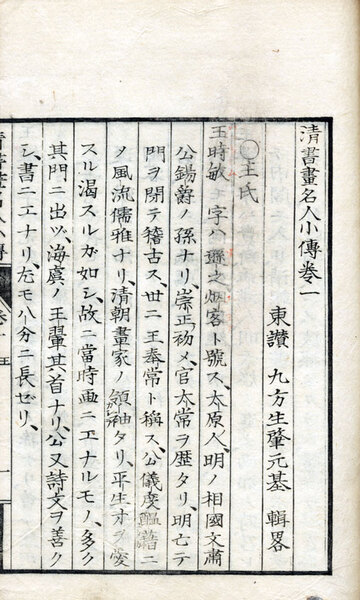 清書畫名人小傳卷一
東讃 九方生肇元基 輯畧
○王氏
王時敏 字ハ遜之烟客ト號ス、太原人、明ノ相國文肅
公錫爵ノ孫ナリ、崇正初メ、官太常ヲ歴タリ、明亡テ
門ヲ閉テ稽古ス、世ニ王奉常ト稱ス、公儀度醞藉ニ
ノ風流儒雅ナリ、清朝畫家ノ領袖タリ、平生才ヲ愛
スル渴スルガ如シ、故ニ當時画ニエナルモノ、多ク
其門ニ出ツ、海虞ノ王翬其首ナリ、公又詩文ヲ善ク
シ、書ニエナリ、尤モ八分ニ長ゼリ、